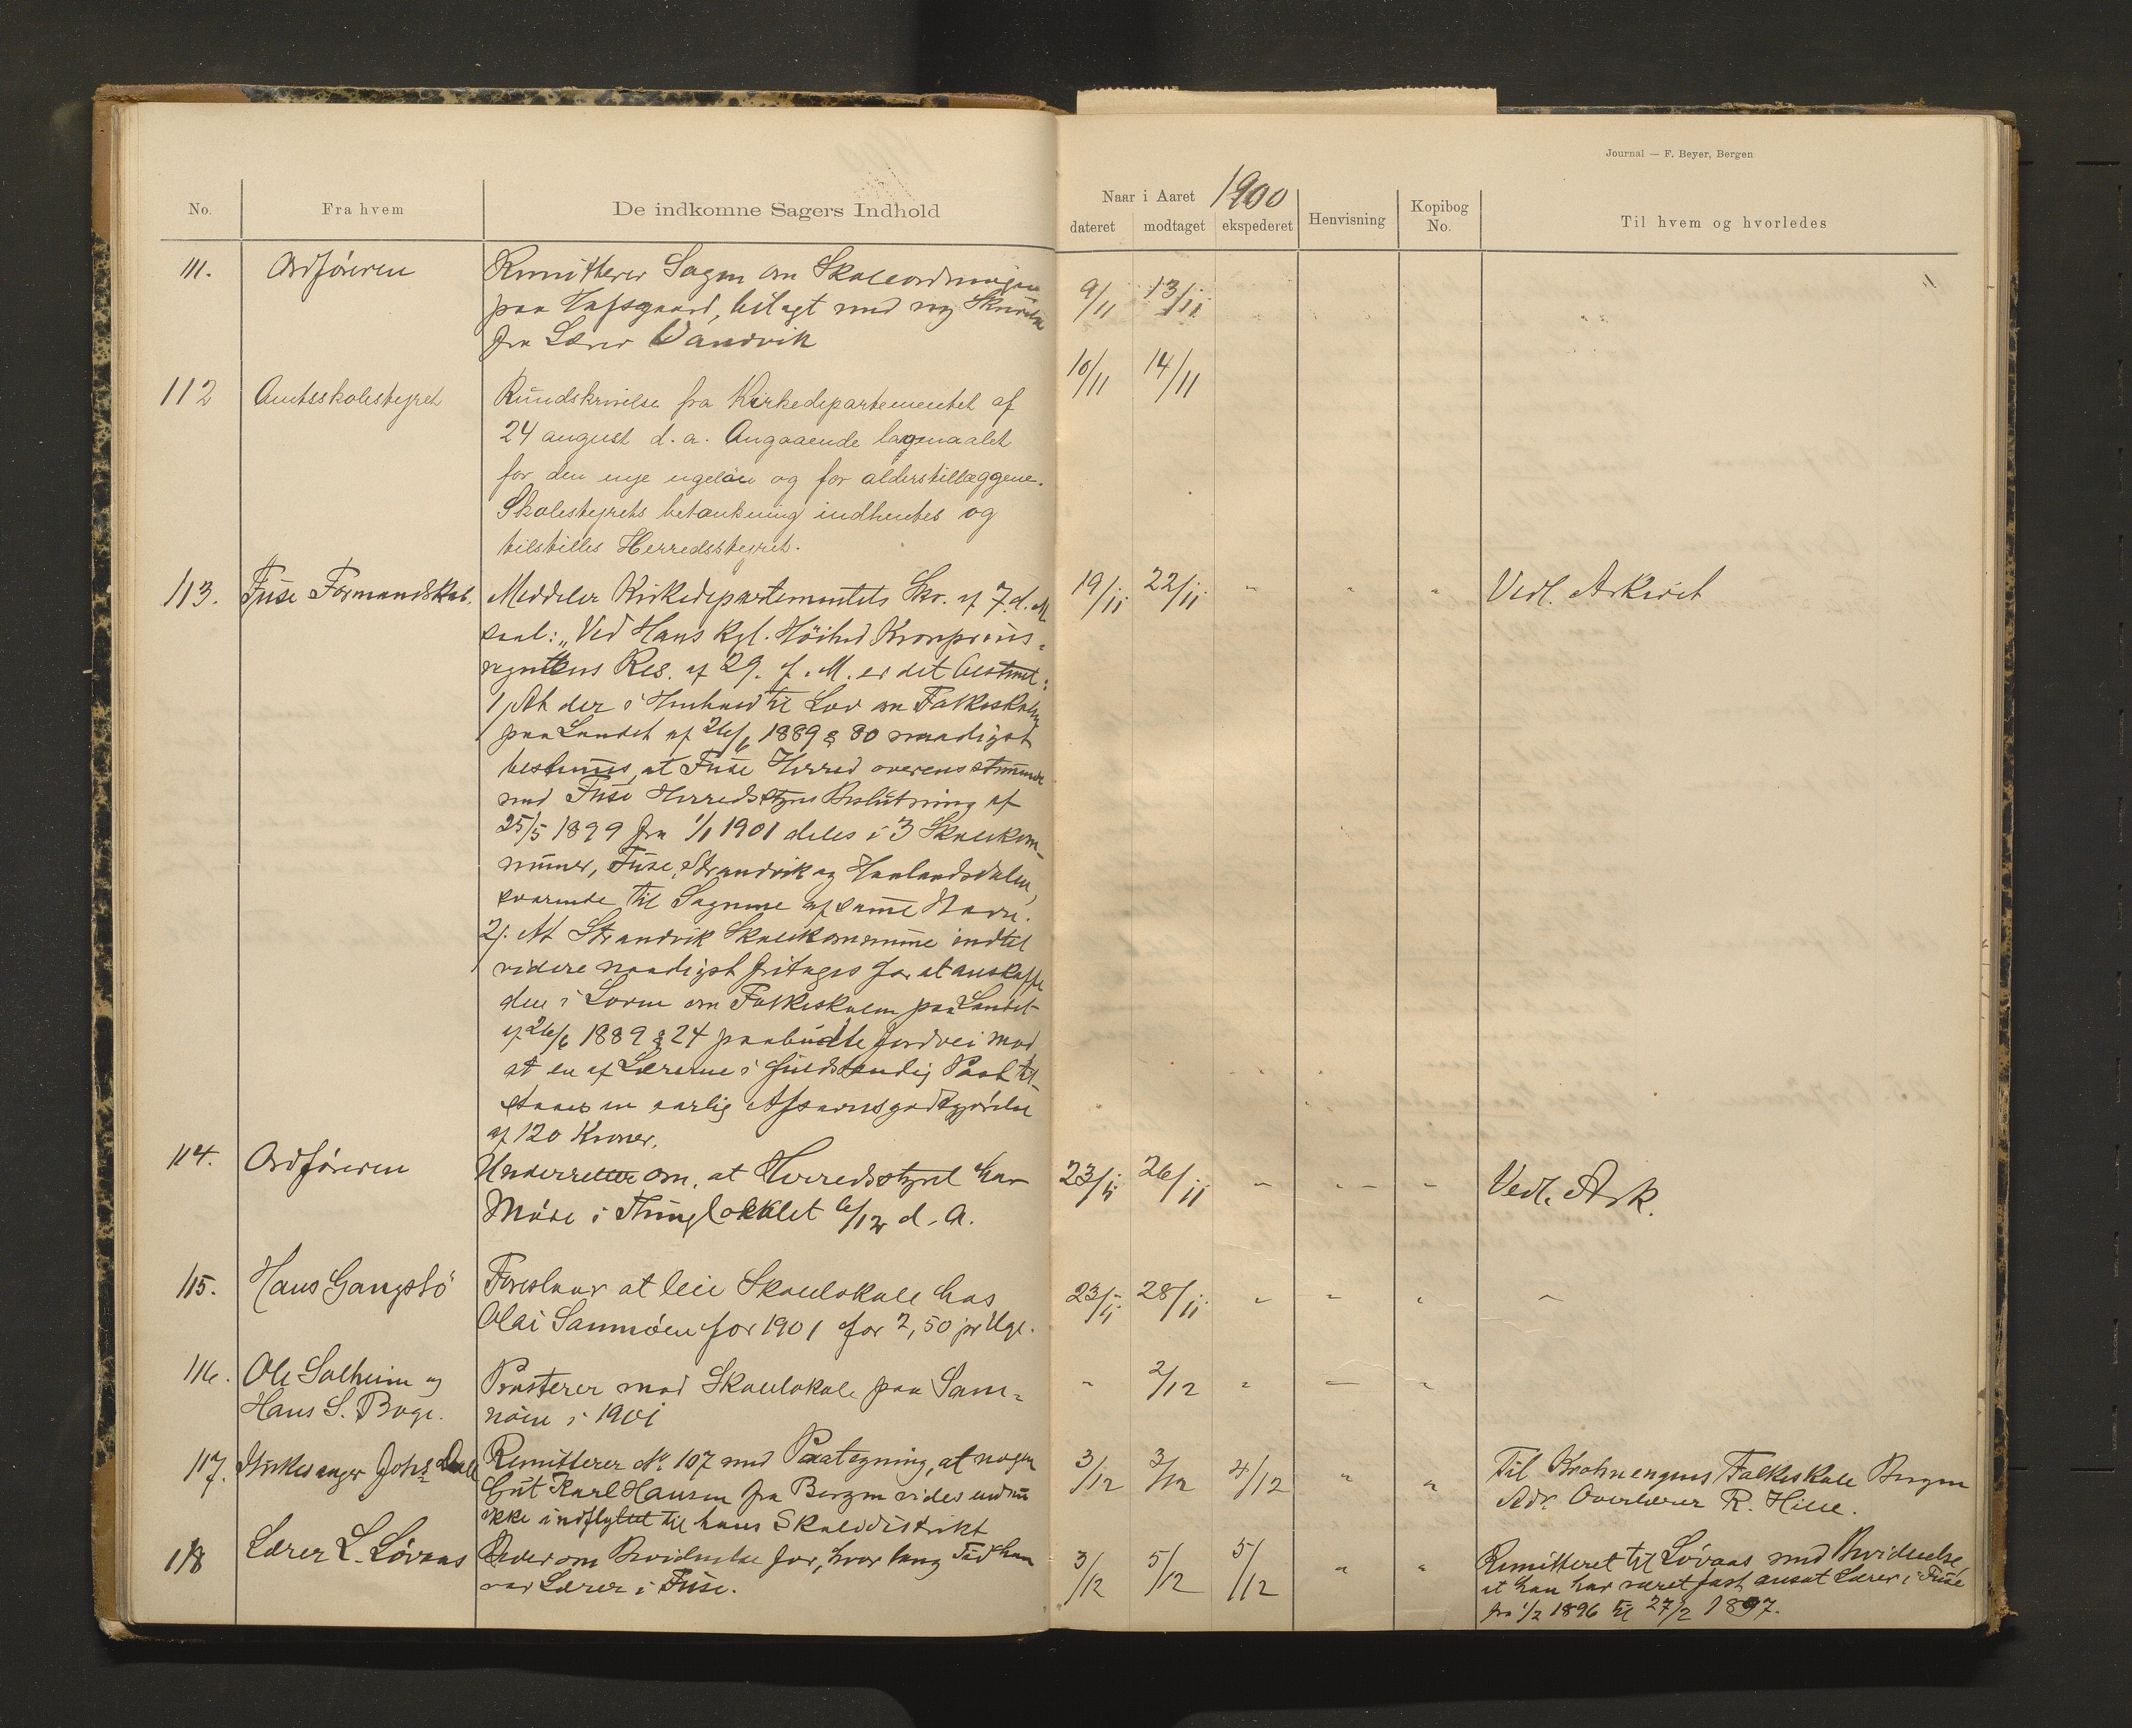 Journal — F. Beyer, Bergen
No.
Fra hvem
De indkomne Sagers Indhold
Naar i Aaret 1900
dateret
modtaget
ekspederet
Henvisning
Kopibog No.
Til hvem og hvorledes
111. Ordföreren
Remitterer Sagen om Skoleordningen
paa Hafsgaard, bilagt med ny Skrivelse
fra Lærer Vandvik
9/11 13/11
112 Amtsskolestyret
Rundskrivelse fra Kirkedepartementet af
24 august d. a. Angaaende lagmaalet
for den nye ugelön og for alderstillæggene.
Skolestyrets betænkning indhentes og
tilstilles Herredsstyret.
10/11 14/11
113. Fuse Formandskab.
Meddeler Kirkedepartementets Skr. af 7. d. M
saal: „Ved Hans Kgl. Höihed Kronprins-
regentens Res. af 29. f. M. er det bestemt:
1, At der i Henhold til Lov om Folkeskolen
paa Landet af 26/6 1889 § 80 naadigst
bestemmes, at Fuse Herred overensstemmende
med Fuse Herredstyres Beslutning af
25/5 1899 fra 1/1 1901 deles i 3 Skolekom-
muner, Fuse, Strandvik og Haalandsdalen,
svarende til Sognene af samme Navn.
2). At Strandvik Skolekommune indtil
videre naadigst fritages for at anskaffe
den i Loven om Folkeskolen paa Landet
af 26/6 1889 § 24 paabudte Jordvei mod
at en af Lærerne i fuldstændig Post til-
staaes en aarlig Afsavnsgodtgjörelse
af 120 Kroner.
19/11 22/11 " " " Vedl. Arkivet
114. Ordföreren
Underretter om, at Herredsstyret har
Möde i Thinglokalet 6/12 d. A.
23/11 26/11 " " " Vedl. Ark.
115. Hans Gangstö
Foreslaar at leie Skolelokale hos
Olai Samnöen for 1901 for 2,50 pr Uge.
23/11 28/11 " " " "
116. Ole Solheim og
Hans S. Boge.
Protesterer mod Skolelokale paa Sam-
nöen i 1901
" 2/12 " " "
117. Kirkesanger Johs Dall
Remitterer No 107 med Paategning, at nogen
Gut Karl Hansen fra Bergen vides endnu
ikke indflyttet til hans Skoledistrikt
3/12 3/12 4/12 " "
Til Krohnengens Folkeskole Bergen
Adr. Overlærer R. Hille.
118 Lærer L. Lövaas
Beder om Bevidnelse for, hvor lang Tid han
var Lærer i Fuse.
3/12 5/12 5/12 " "
Remitteret til Lövaas med Bevidnelse
at han har været fast ansat Lærer i Fuse
fra 1/2 1896 til 27/2 1897.